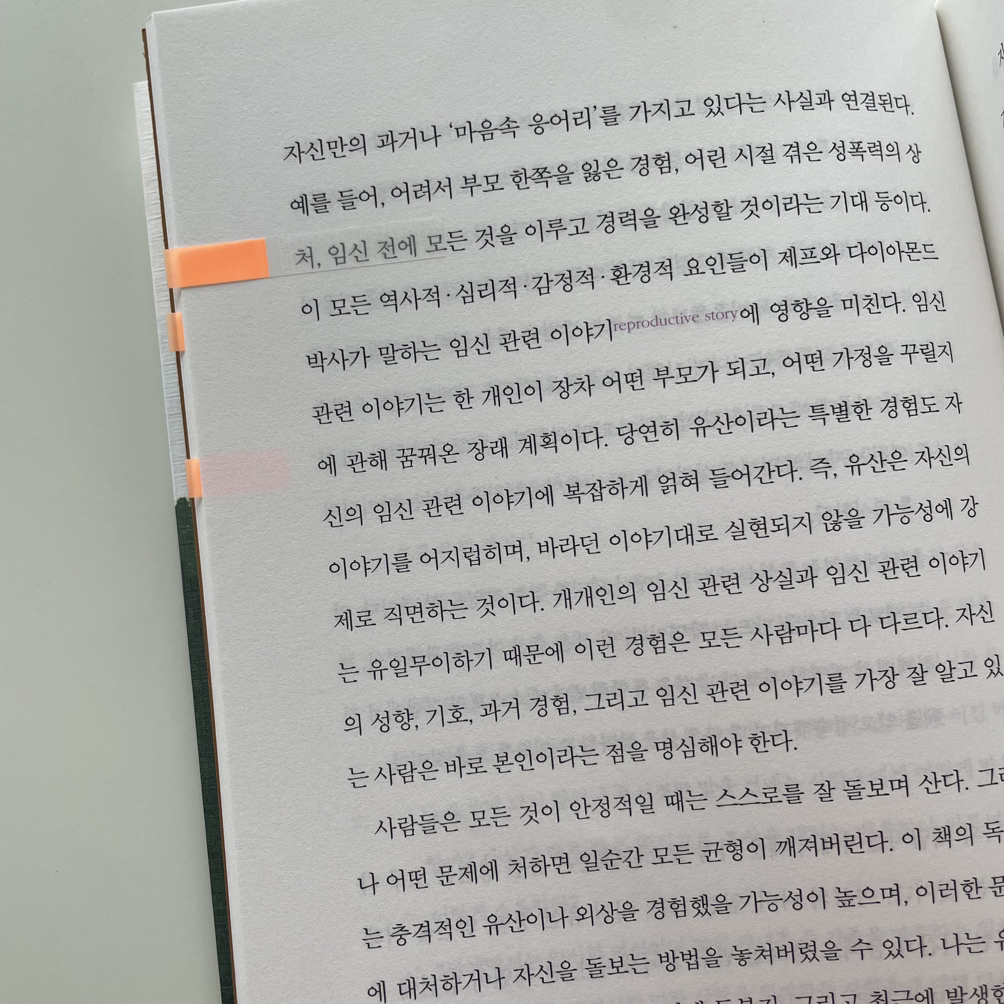 자신만의 과거나 ‘마음속 응어리’를 가지고 있다는 사실과 연결된다.
예를 들어, 어려서 부모 한쪽을 잃은 경험, 어린 시절 겪은 성폭력의 상
처, 임신 전에 모든 것을 이루고 경력을 완성할 것이라는 기대 등이다.
이 모든 역사적·심리적·감정적·환경적 요인들이 제프와 다이아몬드
박사가 말하는 임신 관련 이야기reproductive story에 영향을 미친다. 임신
관련 이야기는 한 개인이 장차 어떤 부모가 되고, 어떤 가정을 꾸릴지
에 관해 꿈꿔온 장래 계획이다. 당연히 유산이라는 특별한 경험도 자
신의 임신 관련 이야기에 복잡하게 얽혀 들어간다. 즉, 유산은 자신의
이야기를 어지럽히며, 바라던 이야기대로 실현되지 않을 가능성에 강
제로 직면하는 것이다. 개개인의 임신 관련 상실과 임신 관련 이야기
는 유일무이하기 때문에 이런 경험은 모든 사람마다 다 다르다. 자신
의 성향, 기호, 과거 경험, 그리고 임신 관련 이야기를 가장 잘 알고 있
는 사람은 바로 본인이라는 점을 명심해야 한다.
사람들은 모든 것이 안정적일 때는 스스로를 잘 돌보며 산다. 그러
나 어떤 문제에 처하면 일순간 모든 균형이 깨져버린다. 이 책의 독
는 충격적인 유산이나 외상을 경험했을 가능성이 높으며, 이러한 문
에 대처하거나 자신을 돌보는 방법을 놓쳐버렸을 수 있다. 나는
그리고 최근에